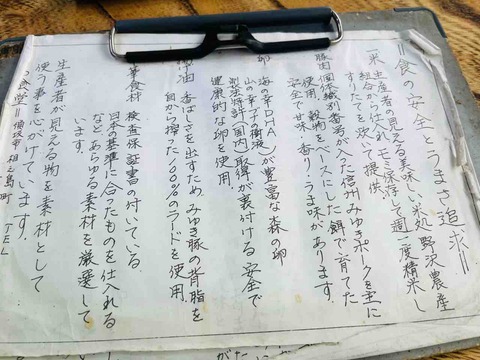 ＝食の安全とうまさ追求＝
一米 生産者の見える美味しい米処野沢農産
組合から仕入れモミ保存して週一度精米し
すりたてを炊いて提供。
豚肉 個体識別番号が入った信州みゆきポークを主に
使用、穀物をベースにした餌で育てた
安全で甘味・香り・うま味があります。
卵 海の幸DHA)が豊富な森の卵
山の幸 の樹液)
製法特許(国内)取得が裏付ける安全で
健康的な卵を使用。
油 香ばしさを出すため、みゆき豚の背脂を
自から搾った100%のラードを使用。
華食材 検査保証書の付いている
日本の基準に合ったものを仕入れる
など、あらゆる素材を厳選して
います。
生産者が見える物を素材として
使う事を心がけています。
食堂＝ 市 相之島町 TEL